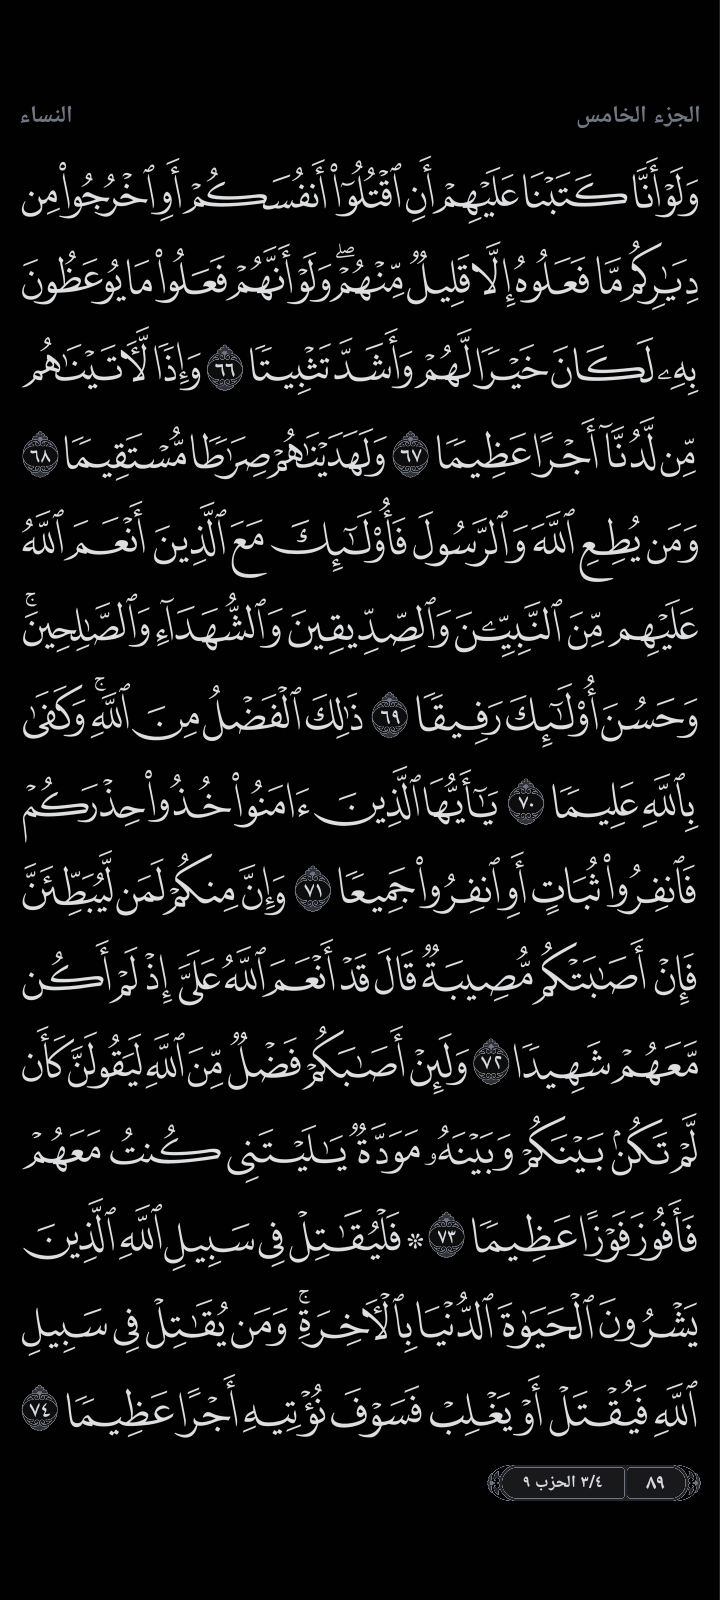 الجزء الخامس
النساء
وَلَوْ أَنَّا كَتَبْنَا عَلَيْهِمْ أَنِ ٱقْتُلُوٓا۟ أَنفُسَكُمْ أَوِ ٱخْرُجُوا۟ مِن
دِيَـٰرِكُم مَّا فَعَلُوهُ إِلَّا قَلِيلٌ مِّنْهُمْ ۖ وَلَوْ أَنَّهُمْ فَعَلُوا۟ مَا يُوعَظُونَ
بِهِۦ لَكَانَ خَيْرًا لَّهُمْ وَأَشَدَّ تَثْبِيتًا ٦٦ وَإِذًا لَّـَٔاتَيْنَـٰهُم
مِّن لَّدُنَّآ أَجْرًا عَظِيمًا ٦٧ وَلَهَدَيْنَـٰهُمْ صِرَٰطًا مُّسْتَقِيمًا ٦٨
وَمَن يُطِعِ ٱللَّهَ وَٱلرَّسُولَ فَأُو۟لَـٰٓئِكَ مَعَ ٱلَّذِينَ أَنْعَمَ ٱللَّهُ
عَلَيْهِم مِّنَ ٱلنَّبِيِّـۧنَ وَٱلصِّدِّيقِينَ وَٱلشُّهَدَآءِ وَٱلصَّـٰلِحِينَ ۚ
وَحَسُنَ أُو۟لَـٰٓئِكَ رَفِيقًا ٦٩ ذَٰلِكَ ٱلْفَضْلُ مِنَ ٱللَّهِ ۚ وَكَفَىٰ
بِٱللَّهِ عَلِيمًا ٧٠ يَـٰٓأَيُّهَا ٱلَّذِينَ ءَامَنُوا۟ خُذُوا۟ حِذْرَكُمْ
فَٱنفِرُوا۟ ثُبَاتٍ أَوِ ٱنفِرُوا۟ جَمِيعًا ٧١ وَإِنَّ مِنكُمْ لَمَن لَّيُبَطِّئَنَّ
فَإِنْ أَصَـٰبَتْكُم مُّصِيبَةٌ قَالَ قَدْ أَنْعَمَ ٱللَّهُ عَلَىَّ إِذْ لَمْ أَكُن
مَّعَهُمْ شَهِيدًا ٧٢ وَلَئِنْ أَصَـٰبَكُمْ فَضْلٌ مِّنَ ٱللَّهِ لَيَقُولَنَّ كَأَن
لَّمْ تَكُنۢ بَيْنَكُمْ وَبَيْنَهُۥ مَوَدَّةٌ يَـٰلَيْتَنِى كُنتُ مَعَهُمْ
فَأَفُوزَ فَوْزًا عَظِيمًا ٧٣ ۞ فَلْيُقَـٰتِلْ فِى سَبِيلِ ٱللَّهِ ٱلَّذِينَ
يَشْرُونَ ٱلْحَيَوٰةَ ٱلدُّنْيَا بِٱلْـَٔاخِرَةِ ۚ وَمَن يُقَـٰتِلْ فِى سَبِيلِ
ٱللَّهِ فَيُقْتَلْ أَوْ يَغْلِبْ فَسَوْفَ نُؤْتِيهِ أَجْرًا عَظِيمًا ٧٤
٨٩
٣/٤ الحزب ٩